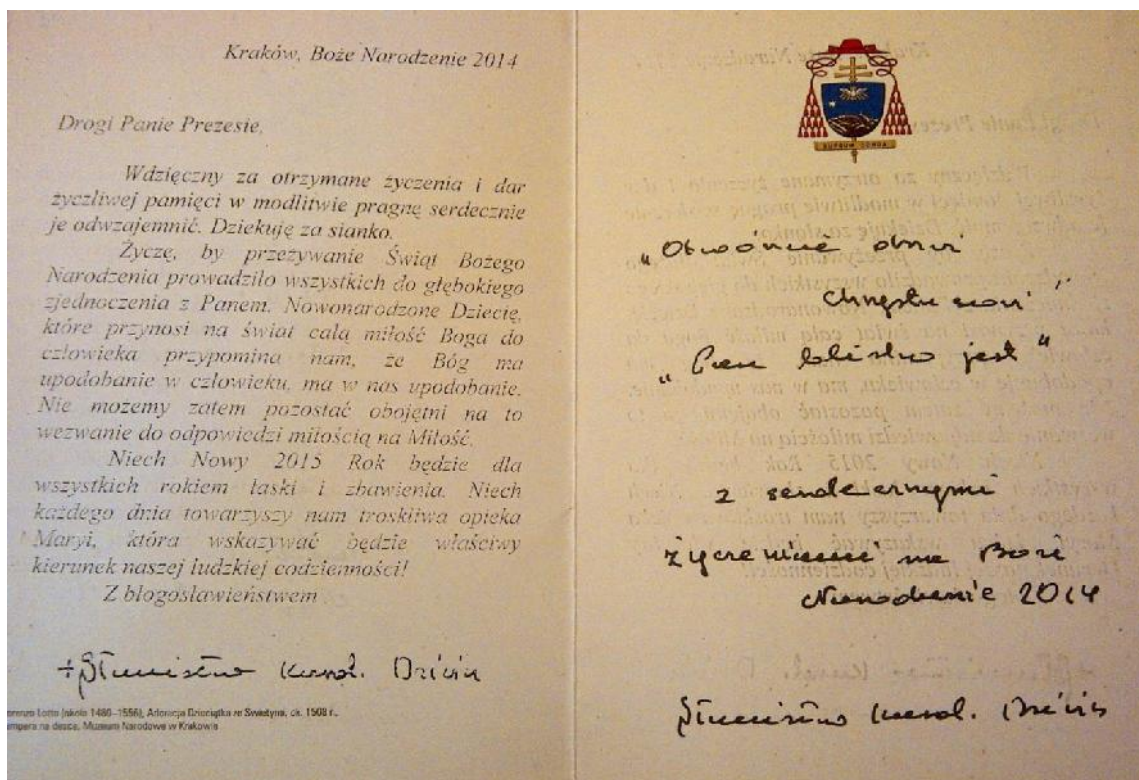 Kraków, Boże Narodzenie 2014
Drogi Panie Prezesie,
Wdzięczny za otrzymane życzenia i dar
życzliwej pamięci w modlitwie pragnę serdecznie
je odwzajemnić. Dziekuję za sianko.
Życzę, by przeżywanie Świąt Bożego
Narodzenia prowadziło wszystkich do głębokiego
zjednoczenia z Panem. Nowonarodzone Dziecię,
które przynosi na świat całą miłość Boga do
człowieka przypomina nam, że Bóg ma
upodobanie w człowieku, ma w nas upodobanie.
Nie możemy zatem pozostać obojętni na to
wezwanie do odpowiedzi miłością na Miłość.
Niech Nowy 2015 Rok będzie dla
wszystkich rokiem łaski i zbawienia. Niech
każdego dnia towarzyszy nam troskliwa opieka
Maryi, która wskazywać będzie właściwy
kierunek naszej ludzkiej codzienności!
Z błogosławieństwem
+ Stanisław Kard. Dziwisz
Lorenzo Lotto (około 1480–1556), Adoracja Dzieciątka ze Świętymi, ok. 1508 r.,
tempera na desce, Muzeum Narodowe w Krakowie
SURSUM CORDA
„Otwórzcie drzwi
Chrystusowi"
„Pan blisko jest"
z serdecznymi
życzeniami na Boże
Narodzenie 2014
Stanisław Kard. Dziwisz